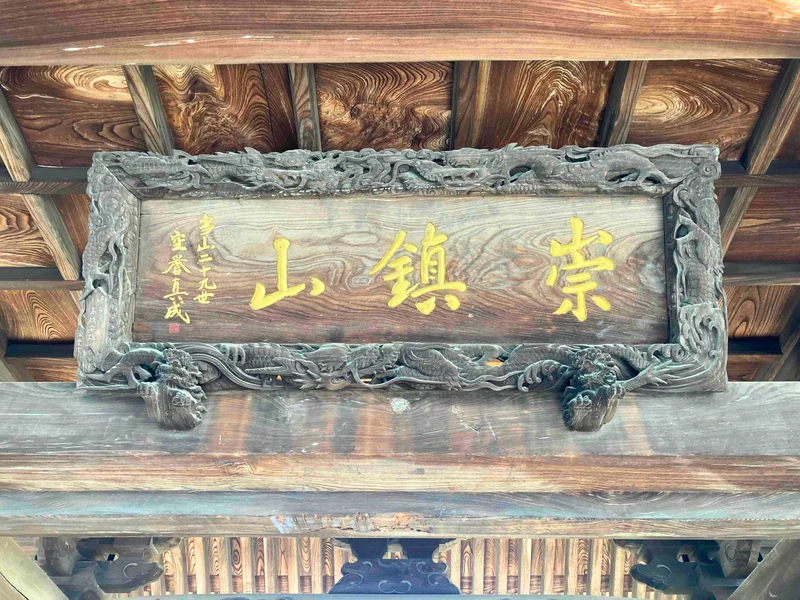 崇鎮山
当山二十九世
空誉真成